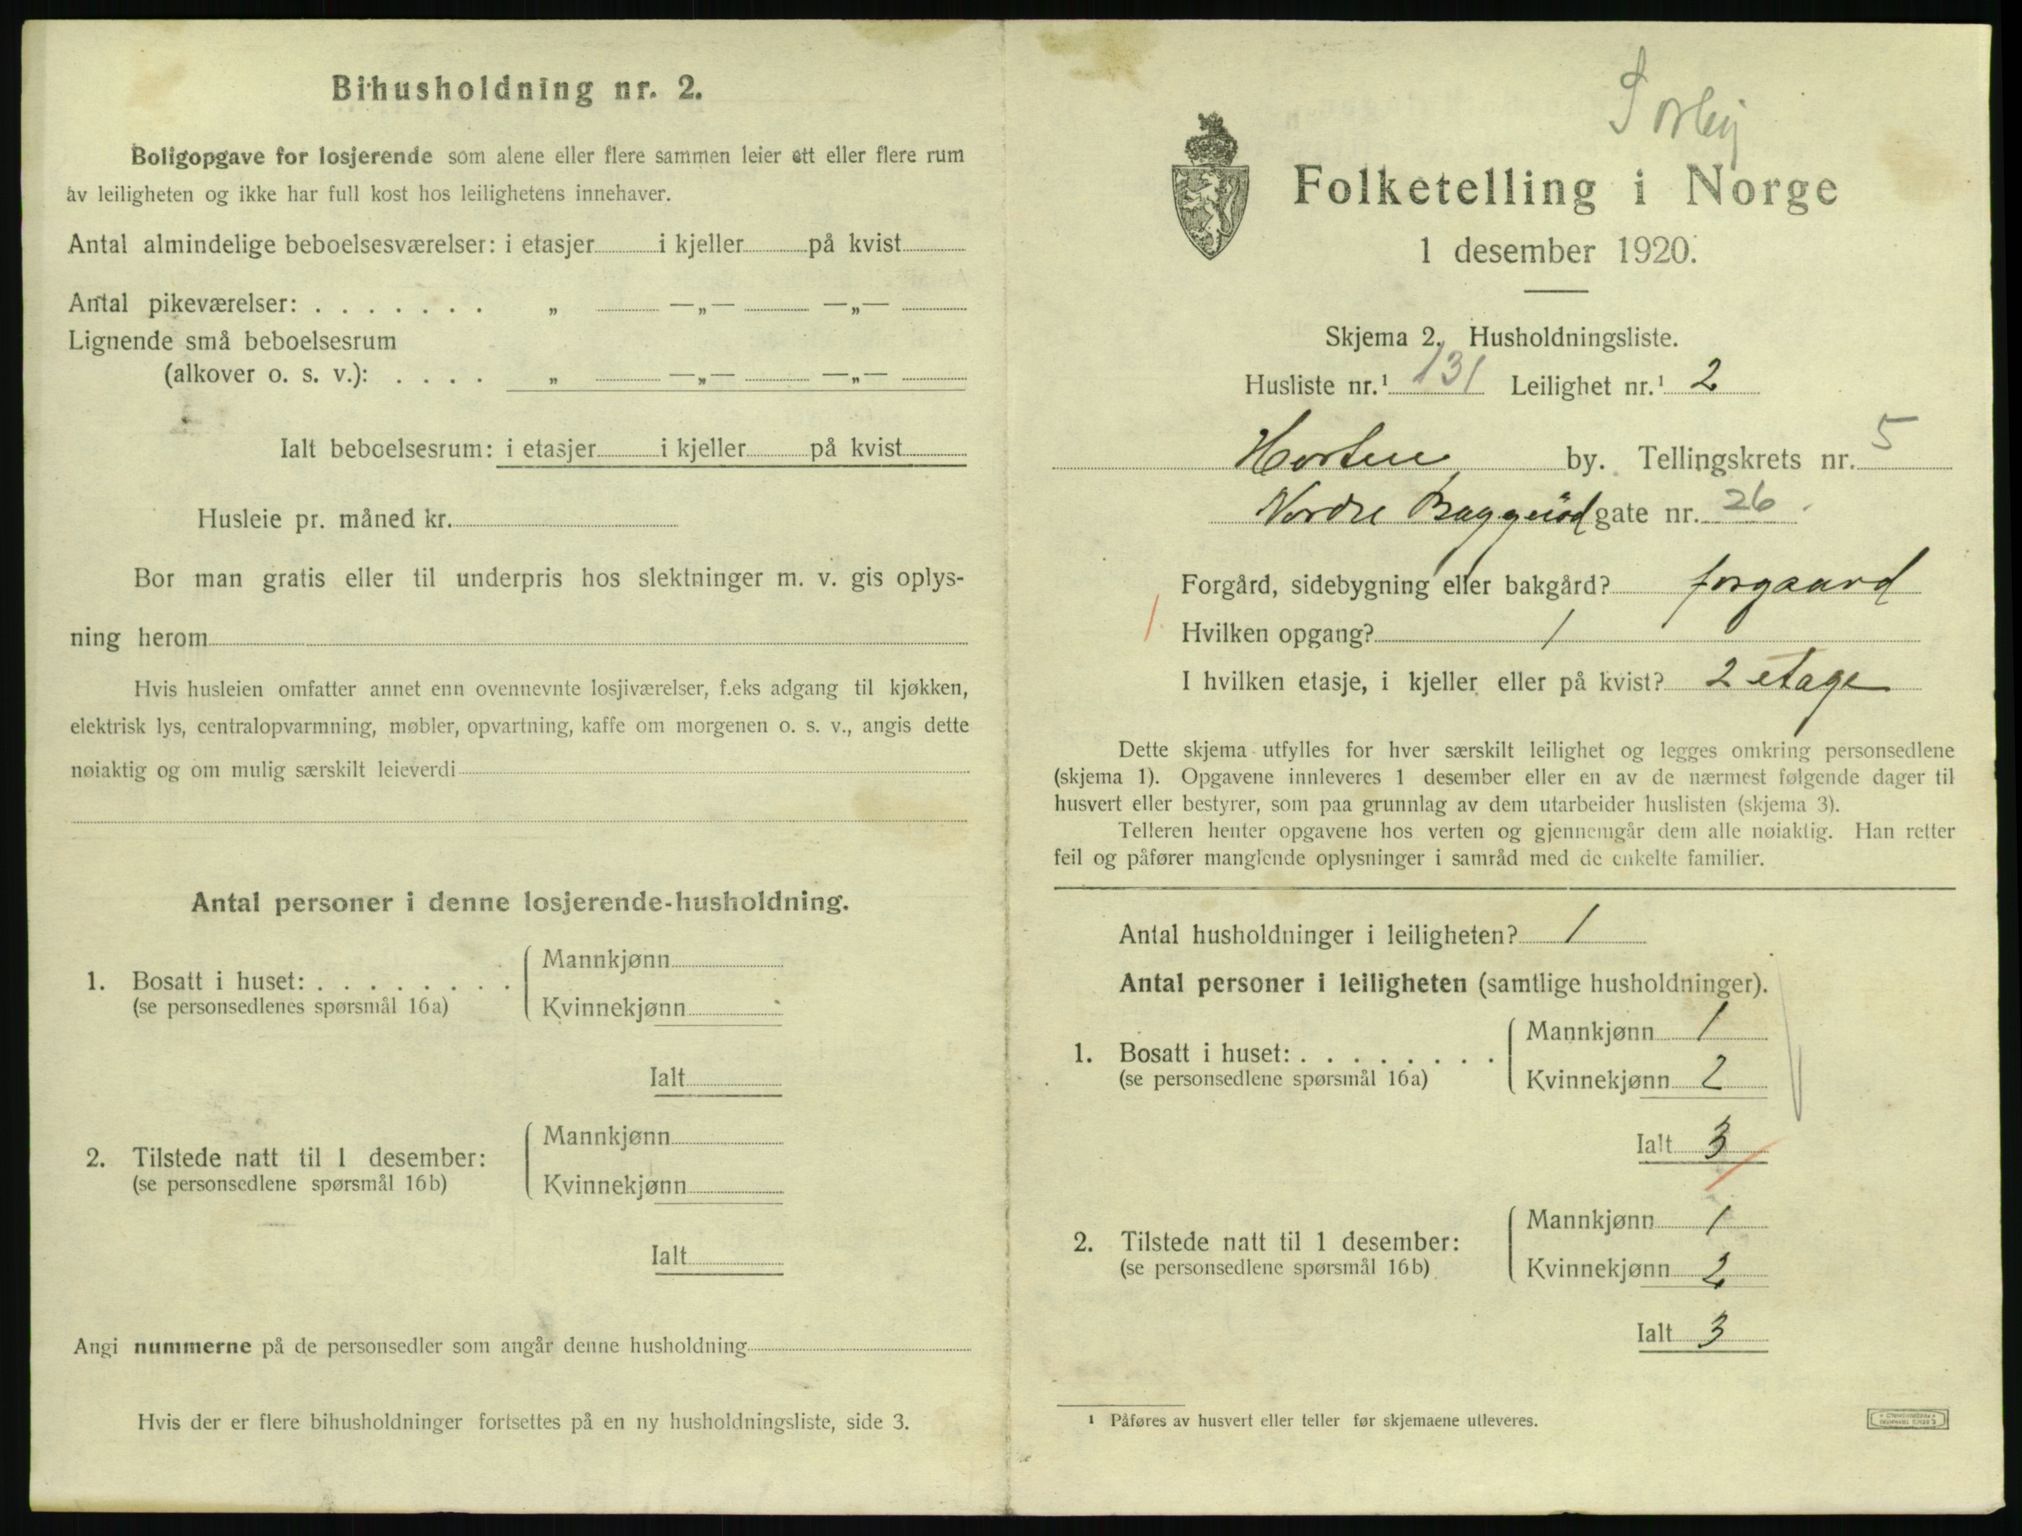 Bihusholdning nr. 2.
Boligopgave for losjerende som alene eller flere sammen leier ett eller flere rum
av leiligheten og ikke har full kost hos leilighetens innehaver.
Antal almindelige beboelsesværelser: i etasjer i kjeller på kvist
Antal pikeværelser: . . . . . . . „ —„— —„—
Lignende små beboelsesrum
(alkover o. s. v.): . . . . „ —„— —„—
Ialt beboelsesrum: i etasjer i kjeller på kvist
Husleie pr. måned kr.
Bor man gratis eller til underpris hos slektninger m. v. gis oplys-
ning herom
Hvis husleien omfatter annet enn ovennevnte losjiværelser, f.eks adgang til kjøkken,
elektrisk lys, centralopvarmning, møbler, opvartning, kaffe om morgenen o. s. v., angis dette
nøiaktig og om mulig særskilt leieverdi
Antal personer i denne losjerende-husholdning.
1. Bosatt i huset: . . . . . . . .
(se personsedlenes spørsmål 16a)
Mannkjønn
Kvinnekjønn
Ialt
2. Tilstede natt til 1 desember:
(se personsedlene spørsmål 16b)
Mannkjønn
Kvinnekjønn
Ialt
Angi nummerne på de personsedler som angår denne husholdning
Hvis der er flere bihusholdninger fortsettes på en ny husholdningsliste, side 3.
Folketelling i Norge
1 desember 1920.
Skjema 2. Husholdningsliste.
Husliste nr.¹ 131 Leilighet nr.¹ 2
Horten by. Tellingskrets nr. 5
Nordre gate nr. 26
Forgård, sidebygning eller bakgård? forgaard
1 Hvilken opgang? 1
I hvilken etasje, i kjeller eller på kvist? 2 etage
Dette skjema utfylles for hver særskilt leilighet og legges omkring personsedlene
(skjema 1). Opgavene innleveres 1 desember eller en av de nærmest følgende dager til
husvert eller bestyrer, som paa grunnlag av dem utarbeider huslisten (skjema 3).
Telleren henter opgavene hos verten og gjennemgår dem alle nøiaktig. Han retter
feil og påfører manglende oplysninger i samråd med de enkelte familier.
Antal husholdninger i leiligheten? 1
Antal personer i leiligheten (samtlige husholdninger).
1. Bosatt i huset: . . . . . . . .
(se personsedlene spørsmål 16a)
Mannkjønn 1
Kvinnekjønn 2
Ialt 3
2. Tilstede natt til 1 desember:
(se personsedlene spørsmål 16b)
Mannkjønn 1
Kvinnekjønn 2
Ialt 3
¹ Påføres av husvert eller teller før skjemaene utleveres.